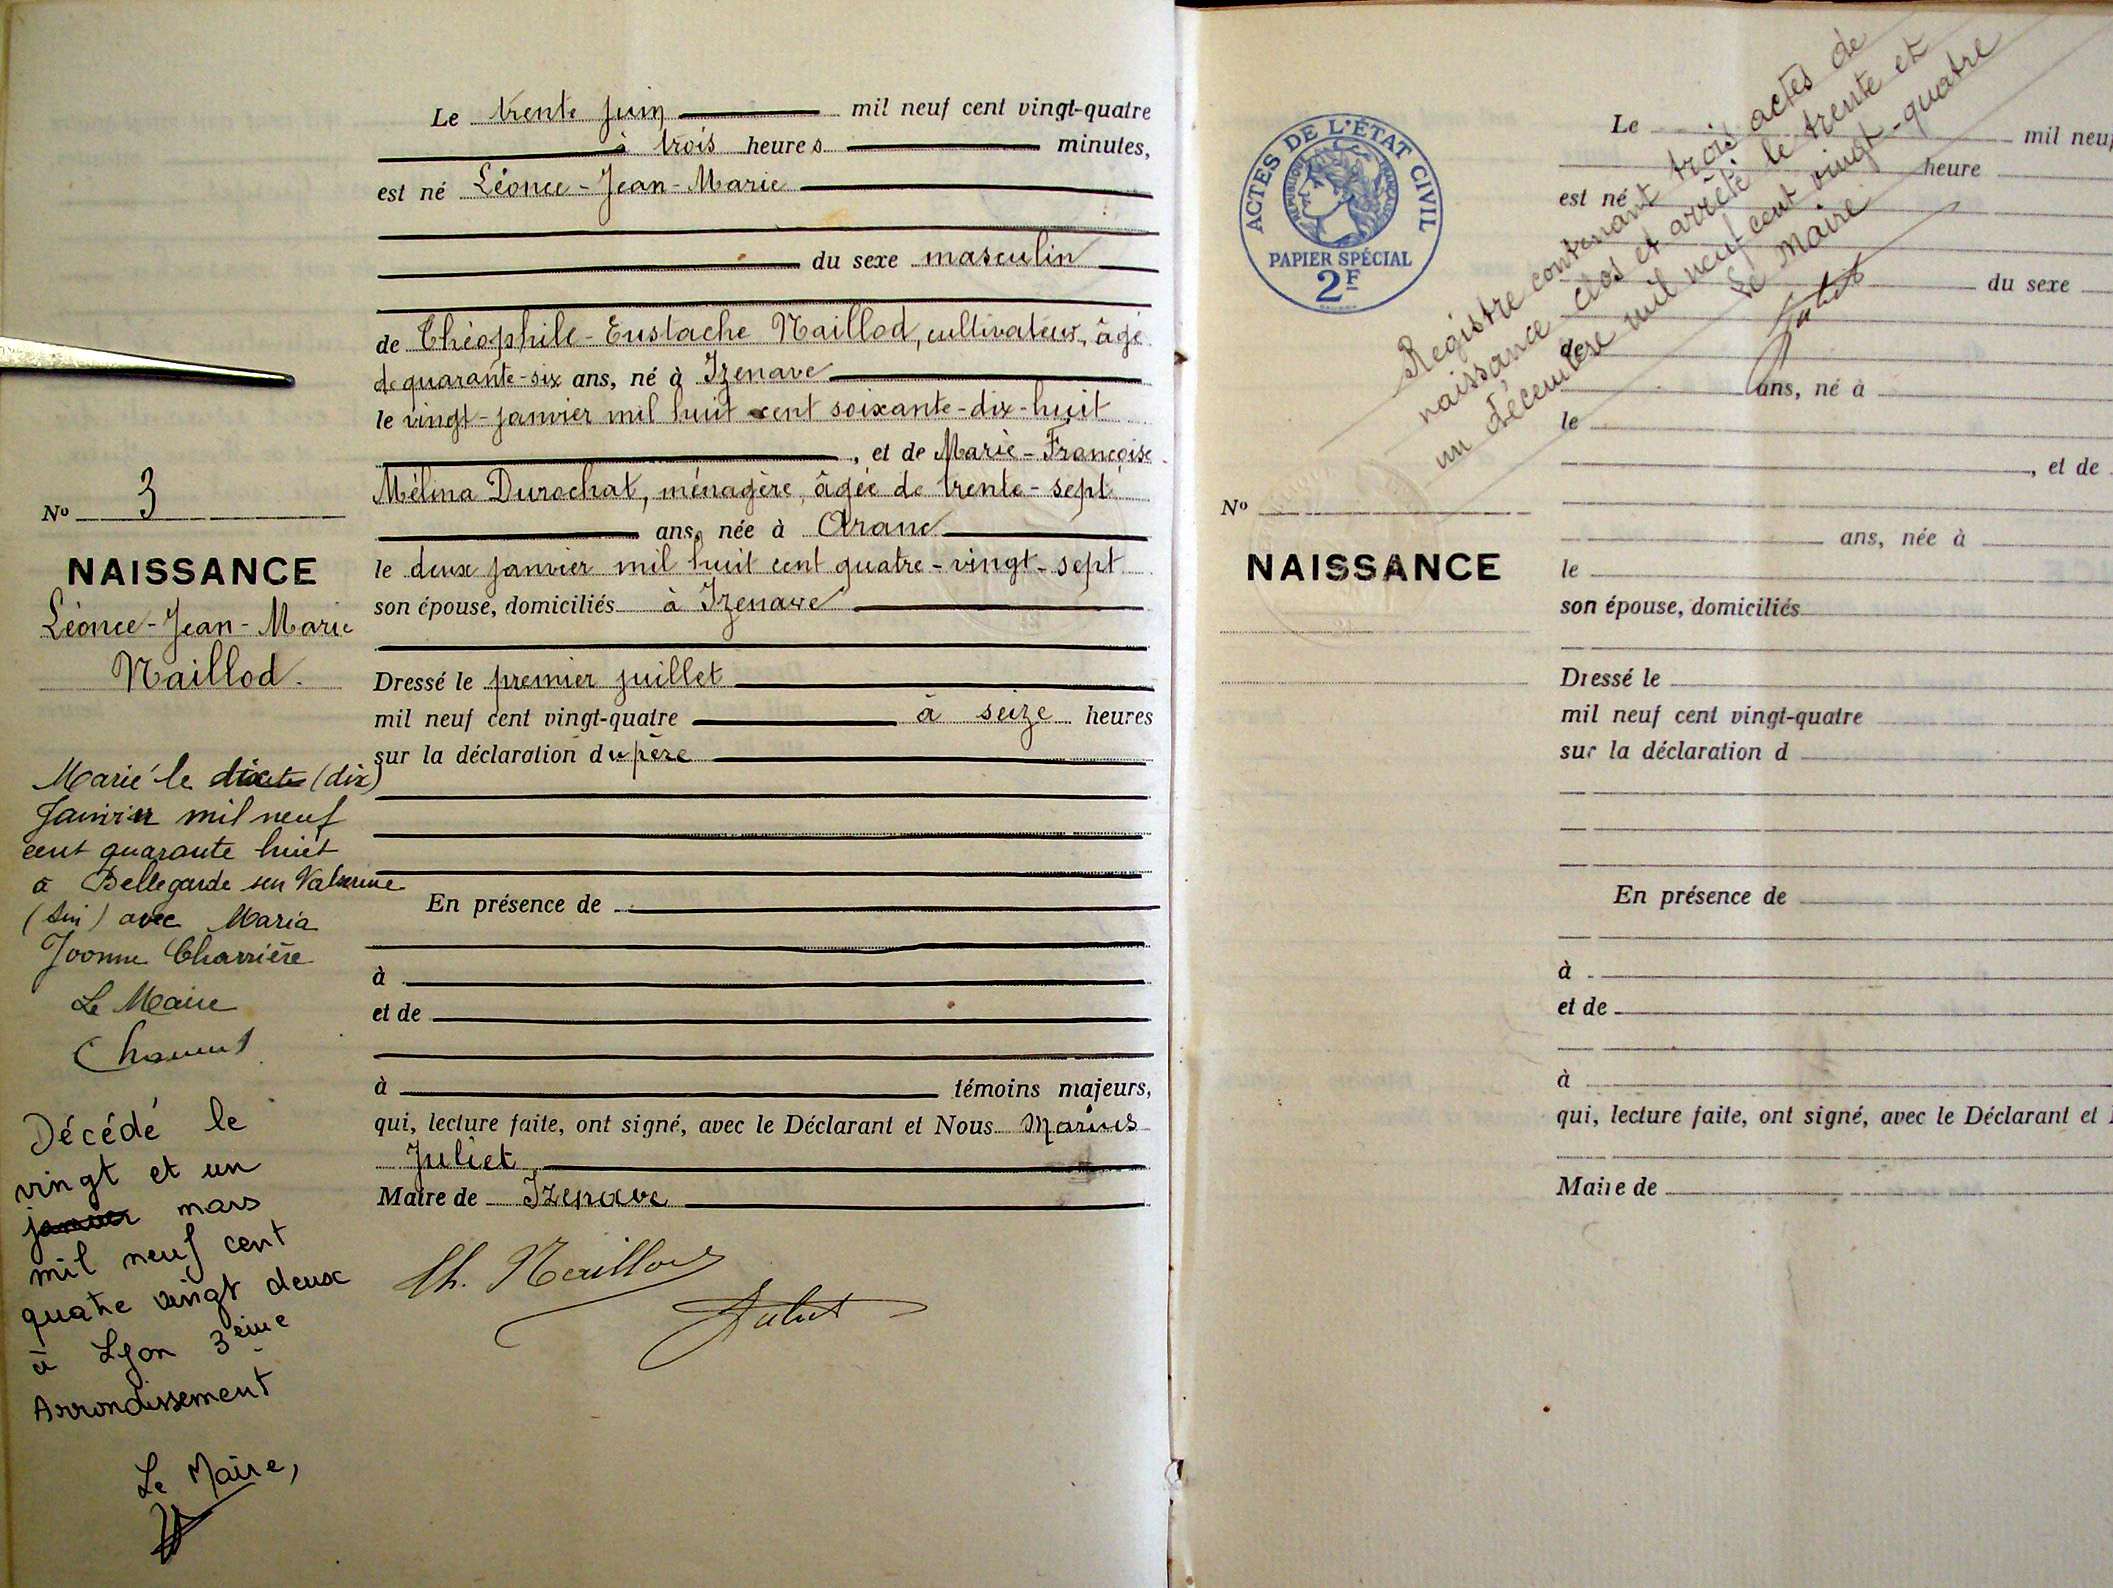 Le trente juin mil neuf cent vingt-quatre
à trois heures minutes,
est né Léonce-Jean-Marie
du sexe masculin
de Théophile-Eustache Naillod, cultivateur, âgé
de quarante-six ans, né à Izenave
le vingt-janvier mil huit cent soixante-dix-huit
, et de Marie-Françoise
Mélina Durochat, ménagère, âgée de trente-sept
ans, née à Aranc
le deux janvier mil huit cent quatre-vingt-sept
son épouse, domiciliés à Izenave
Dressé le premier juillet
mil neuf cent vingt-quatre à seize heures
sur la déclaration du père
En présence de
à
et de
à témoins majeurs,
qui, lecture faite, ont signé, avec le Déclarant et Nous Marius
Juliet
Maire de Izenave
Th. Naillod
Juliet
No 3
NAISSANCE
Léonce-Jean-Marie
Naillod.
Marié le (dix)
Janvier mil neuf
cent quarante huit
à Bellegarde sur Valserine
(Ain) avec Maria
Yvonne Charrière
Le Maire
Décédé le
vingt et un
janvier mars
mil neuf cent
quatre vingt deux
à Lyon 3ème
Arrondissement
Le Maire,
ACTES DE L'ÉTAT CIVIL
RÉPUBLIQUE FRANÇAISE
PAPIER SPÉCIAL
2F
Registre contenant trois actes de
naissance clos et arrêté le trente et
un décembre mil neuf cent vingt-quatre
Le Maire
Juliet
No
NAISSANCE
Le mil neuf
heure
est né
du sexe
de
ans, né à
le
, et de
ans, née à
le
son épouse, domiciliés
Dressé le
mil neuf cent vingt-quatre
sur la déclaration d
En présence de
à
et de
à
qui, lecture faite, ont signé, avec le Déclarant et
Maire de